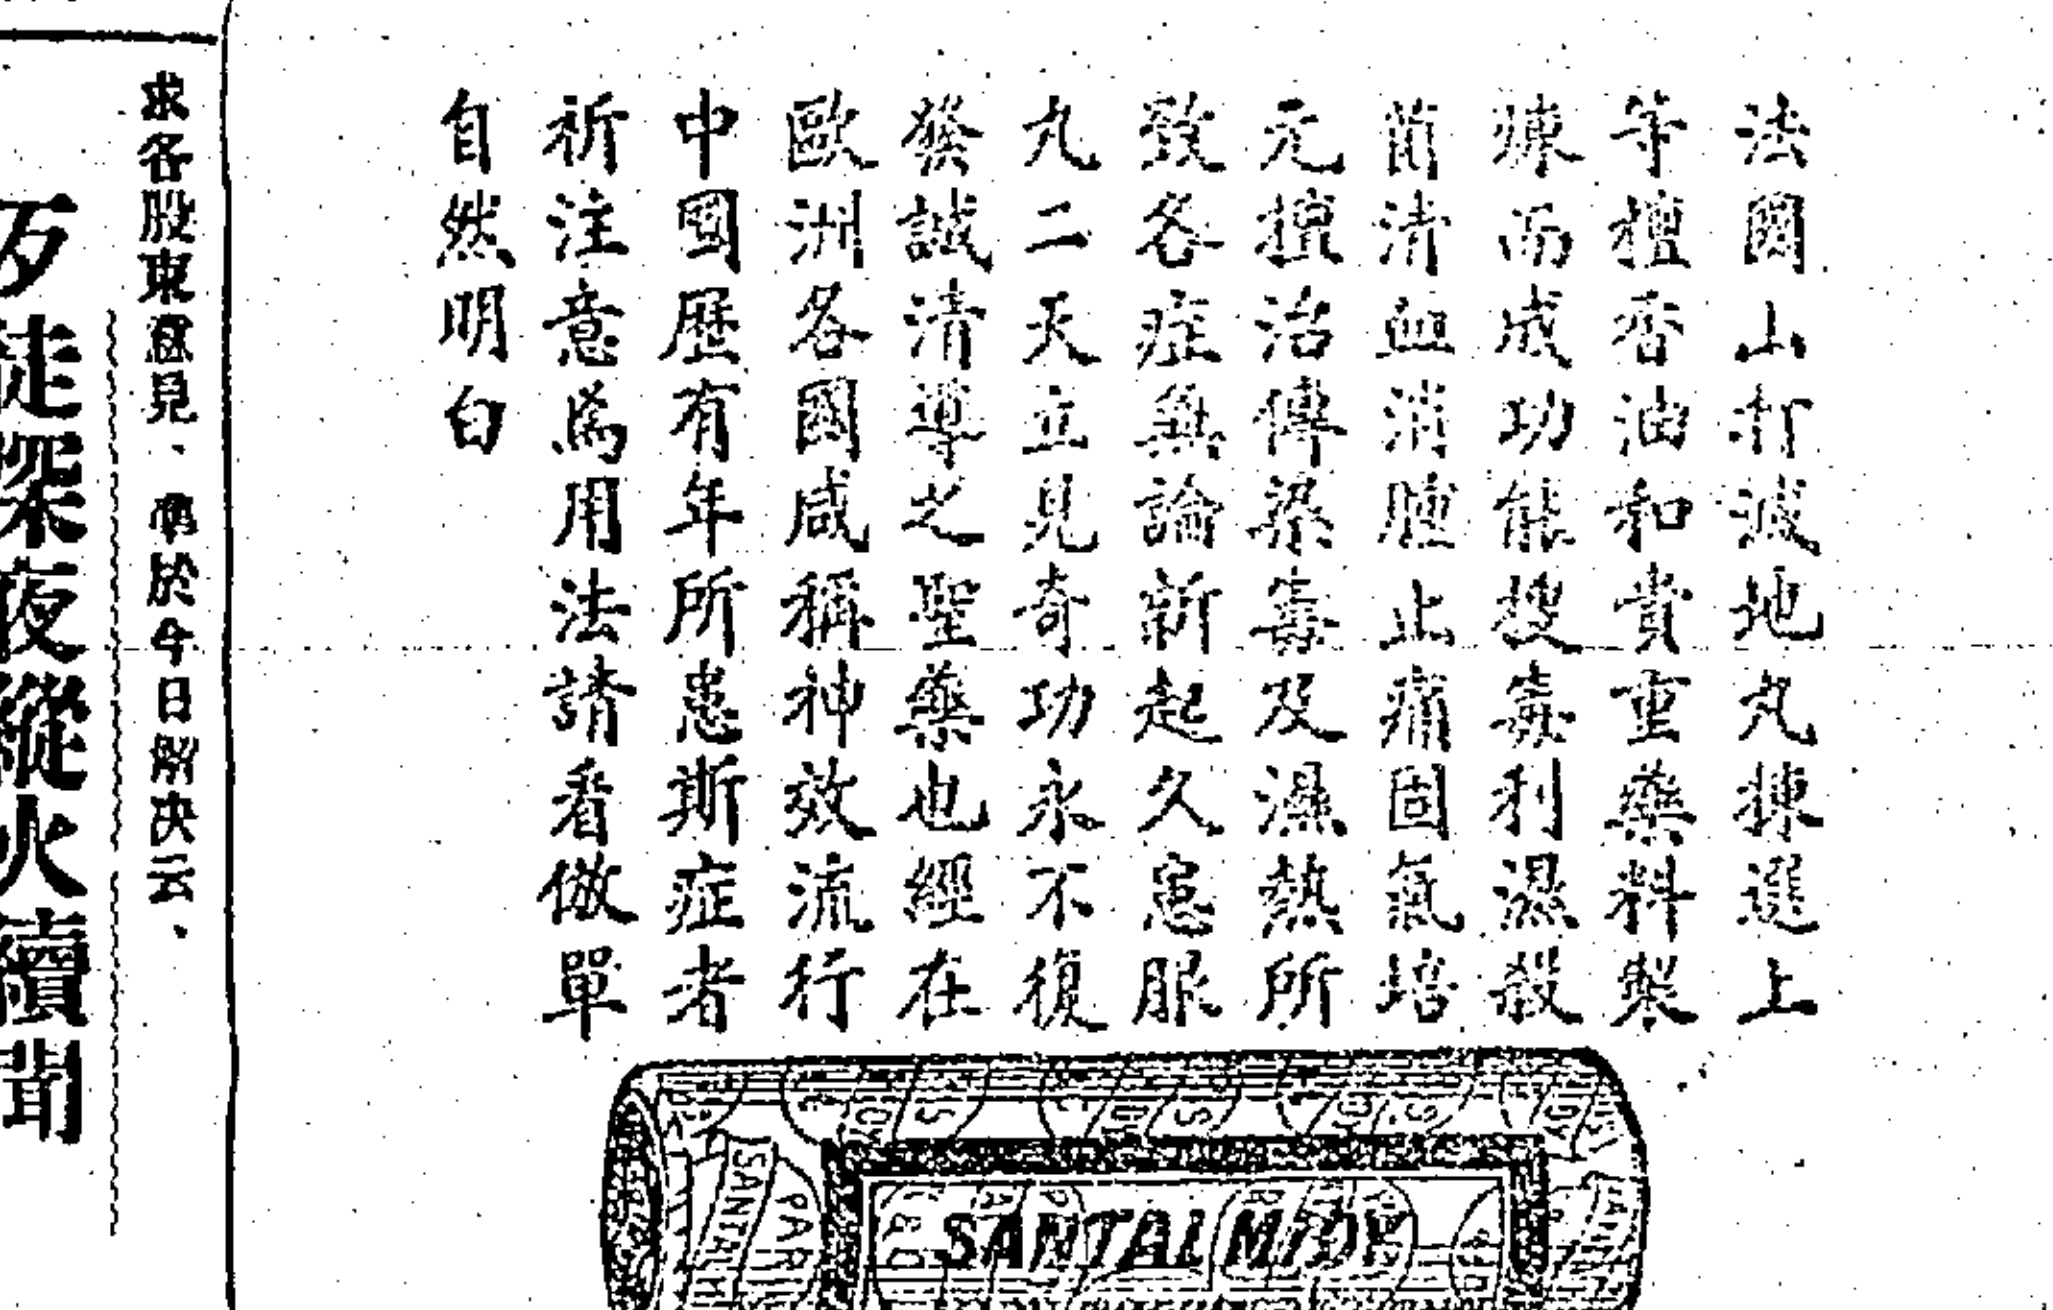 法國山打滅地丸揀選上
等檀香油和貴重藥料製
煉而成功能搜毒利濕殺
菌清血消腫止痛固氣培
元擅治傳染毒及濕熱所
致各症無論新起久患服
丸二天立見奇功永不復
發誠清導之聖藥也經在
歐洲各國咸稱神效流行
中國歷有年所患斯症者
祈注意為用法請看倣單
自然明白
SANTAL MIDY
求各股東意見、準於今日解决云、
歹徒深夜縱火續聞